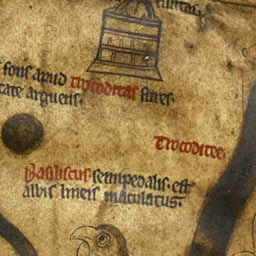 fons apud Trocoditas siues
tate arguens
Trocoditee
Basiliscus semipedalis est
albis lineis maculatus